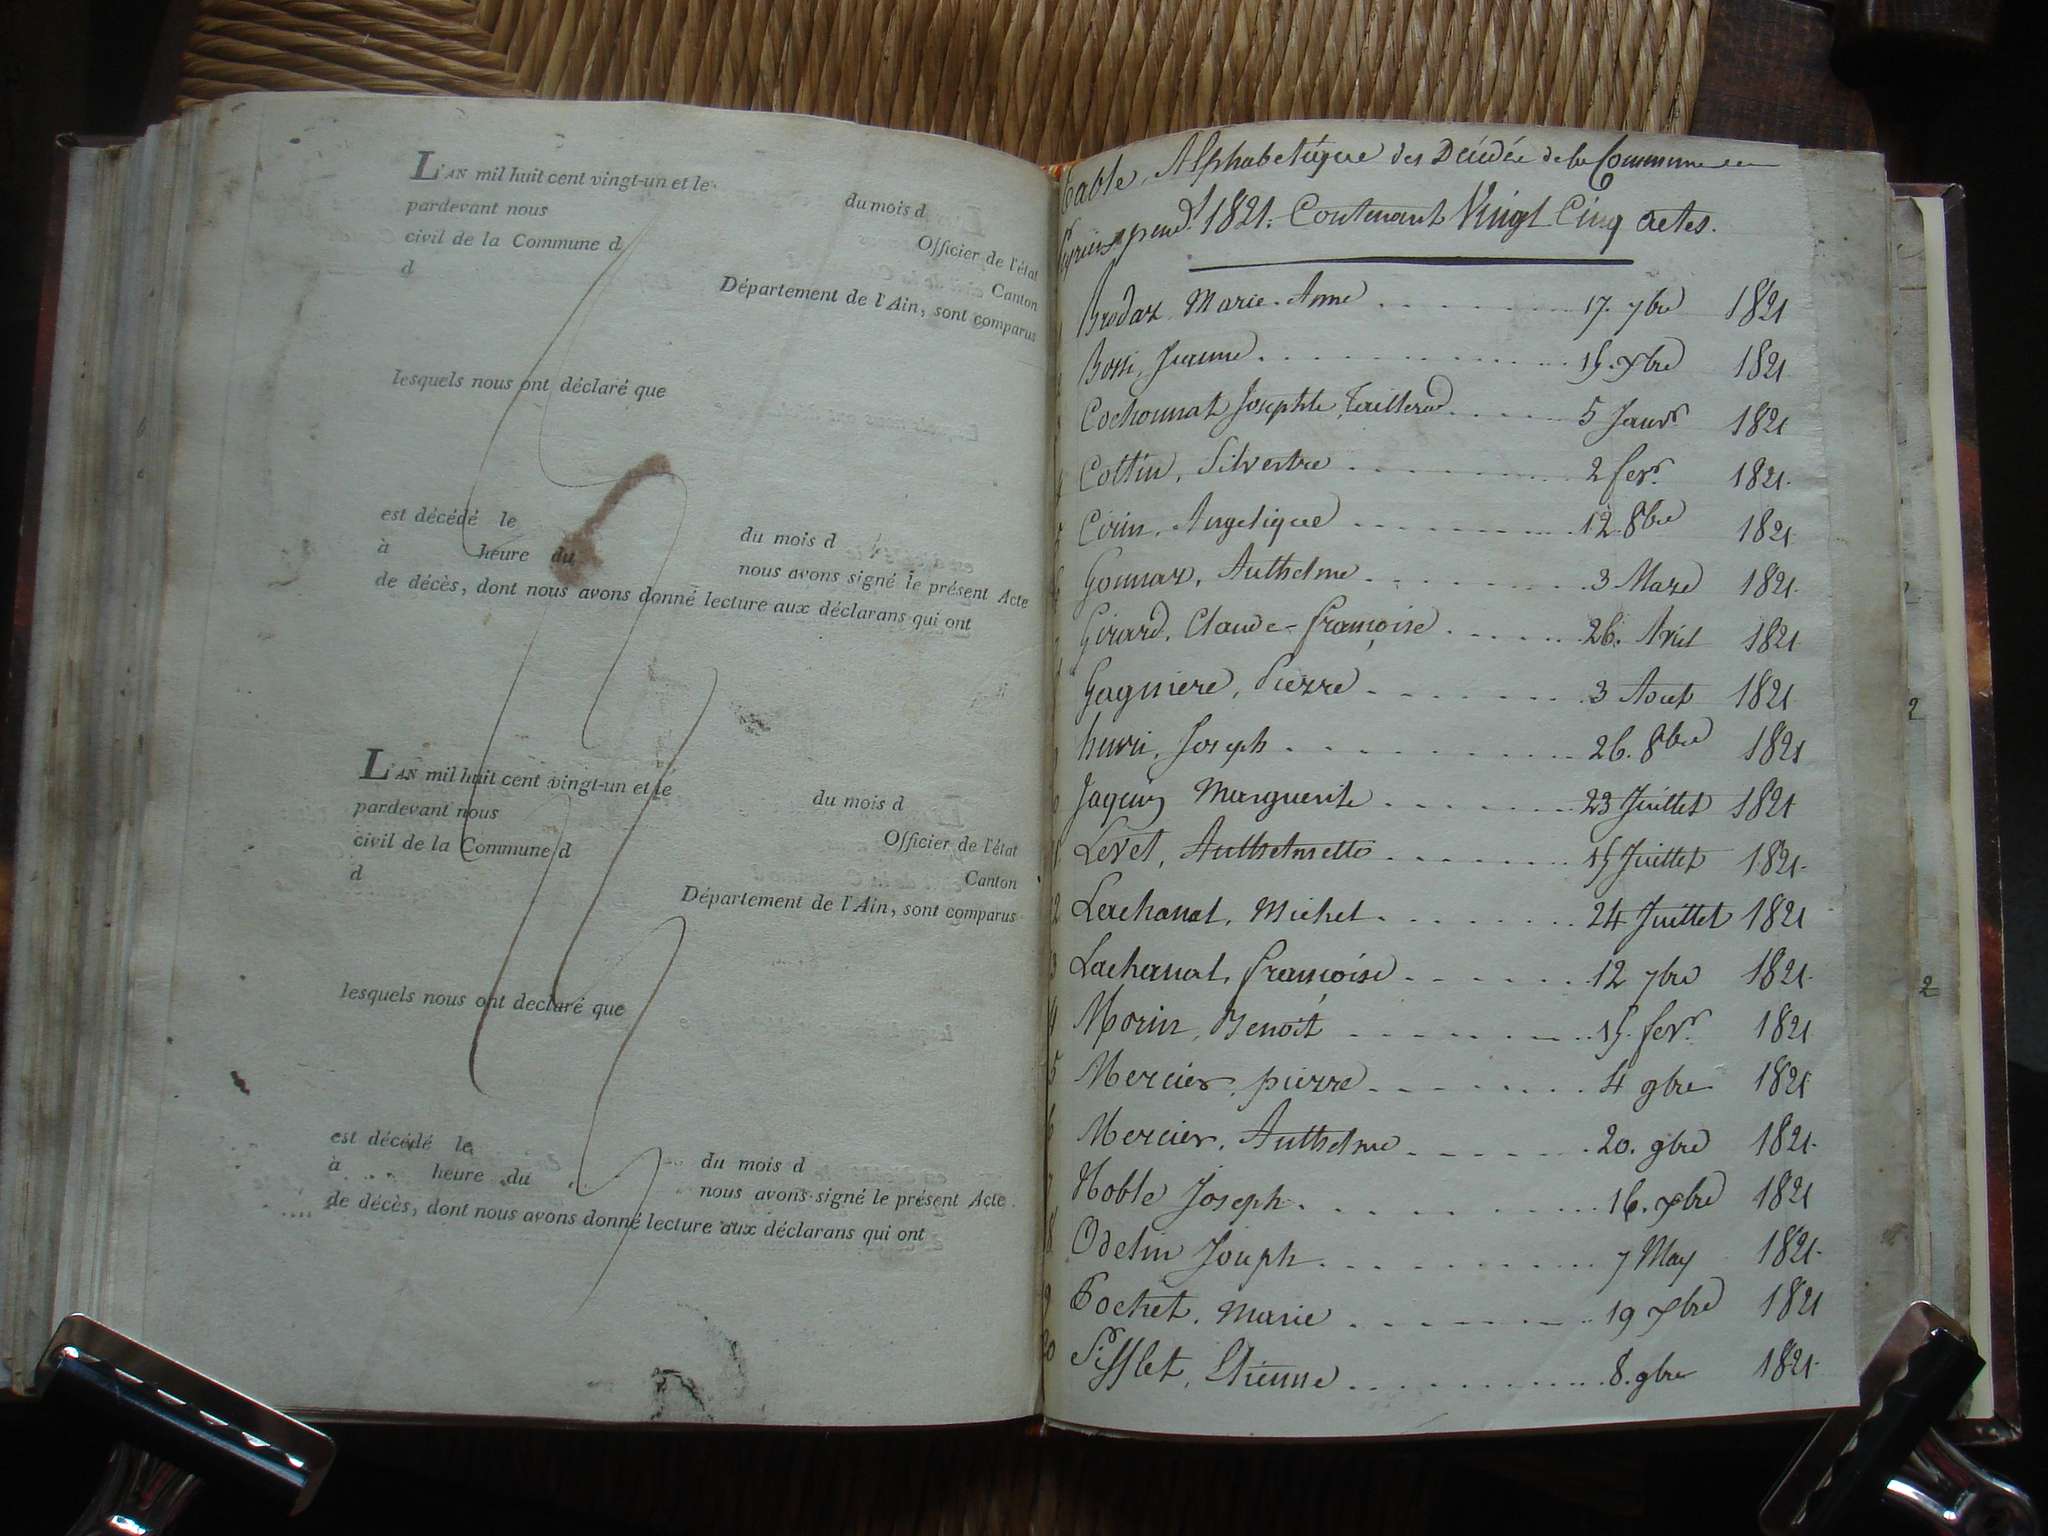 L'AN mil huit cent vingt-un et le
du mois d
pardevant nous
Officier de l'état
civil de la Commune d
Canton
d
Département de l'Ain, sont comparus
lesquels nous ont déclaré que
est décédé le
du mois d
à heure du
nous avons signé le présent Acte
de décès, dont nous avons donné lecture aux déclarans qui ont
L'AN mil huit cent vingt-un et le
du mois d
pardevant nous
Officier de l'état
civil de la Commune d
Canton
d
Département de l'Ain, sont comparus
lesquels nous ont declaré que
est décédé le
du mois d
à heure du
nous avons signé le présent Acte
de décès, dont nous avons donné lecture aux déclarans qui ont
Table Alphabetique des Décédés de la Commune
pend.t 1821. Contenant Vingt Cinq actes.
Brodaz Marie-Anne 17. 7bre 1821
Bossi, Jeanne 15. Xbre 1821
Cochonnat Josephte 5 Janvr 1821
Cottin, Silvestre 2 fevr. 1821
Cirin, Angelique 12. 8bre 1821
Gonnaz, Anthelme 3 Mars 1821
Girard, Claude-françoise 26. Avril 1821
Gagniere, Pierre 3 Aout 1821
henri, Joseph 26. 8bre 1821
Marguerite 23 Juillet 1821
Levet, Anthelmette 15 Juillet 1821
12 Lachanal, Michel 24 Juillet 1821
13 Lachanal, françoise 12 7bre 1821
4 Morin, Benoit 15. fevr. 1821
5 Mercier, pierre 4 9bre 1821
6 Mercier, Anthelme 20. 9bre 1821
7 Noble Joseph 16. Xbre 1821
8 Odelin Joseph 7 May 1821
9 Pochet, Marie 19 Xbre 1821
20 Sifflet, Etienne 8. 9bre 1821
2
2